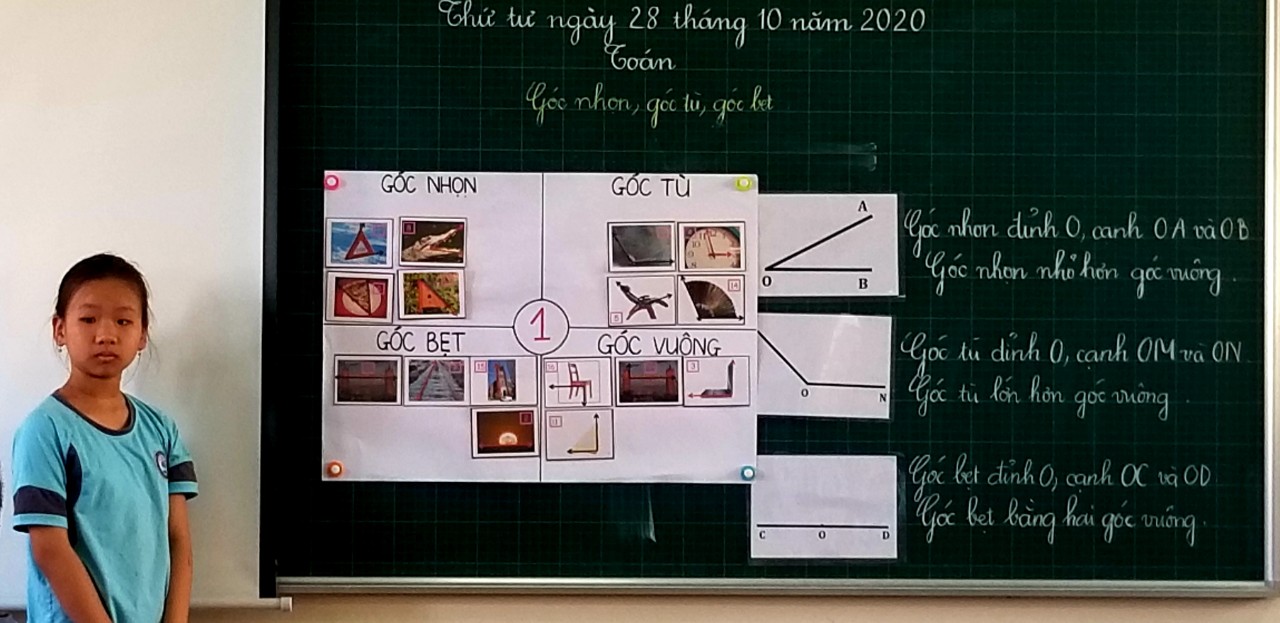 Thứ tư ngày 28 tháng 10 năm 2020
Toán
Góc nhọn, góc tù, góc bẹt
GÓC NHỌN
GÓC TÙ
GÓC BẸT
GÓC VUÔNG
1
A
O
B
Góc nhọn đỉnh O, cạnh OA và OB
Góc nhọn nhỏ hơn góc vuông.
O
N
Góc tù đỉnh O, cạnh OM và ON
Góc tù lớn hơn góc vuông.
C
O
D
Góc bẹt đỉnh O, cạnh OC và OD
Góc bẹt bằng hai góc vuông.